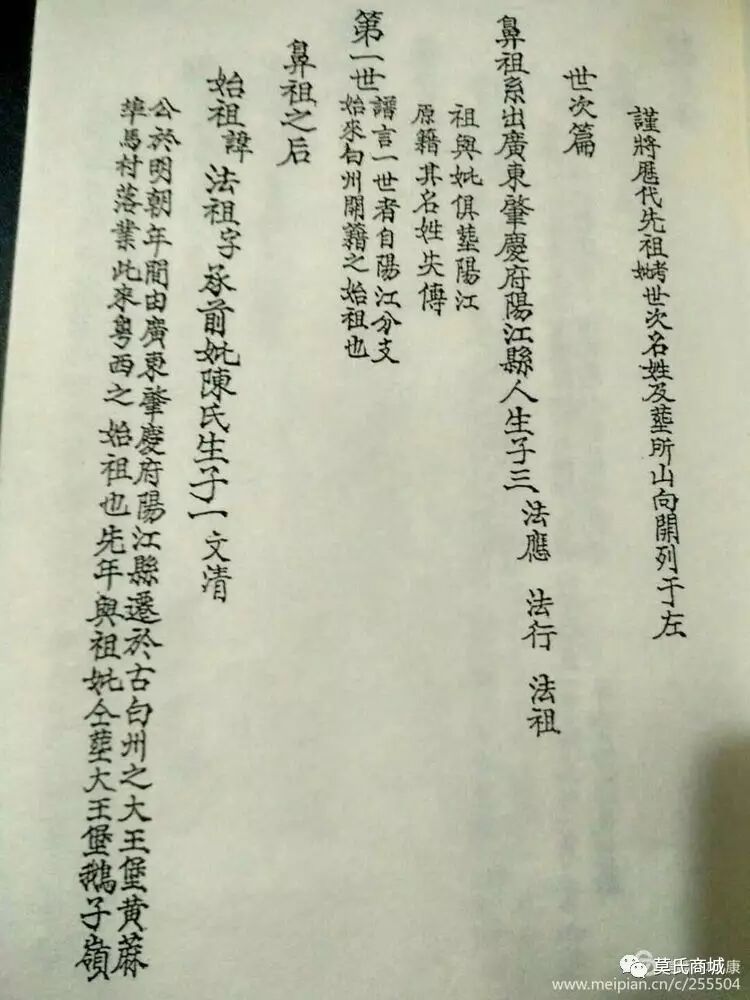 謹將歷代先祖考妣世次名姓及塟所山向開列于左
世次篇
鼻祖系出廣東肇慶府陽江縣人生子三 法應 法行 法祖
祖與妣俱塟陽江
原籍其名姓失傳
第一世
譜言一世者自陽江分支
始來白州開籍之始祖也
鼻祖之后
始祖諱 法祖字 承前妣陳氏生子一 文清
公於明朝年間由廣東肇慶府陽江縣遷於古白州之大王堡黄蔴
埠馬村落業此來粤西之始祖也先年與祖妣仝塟大王堡鵝子嶺
莫氏商城
康
www.meipian.cn/c/255504